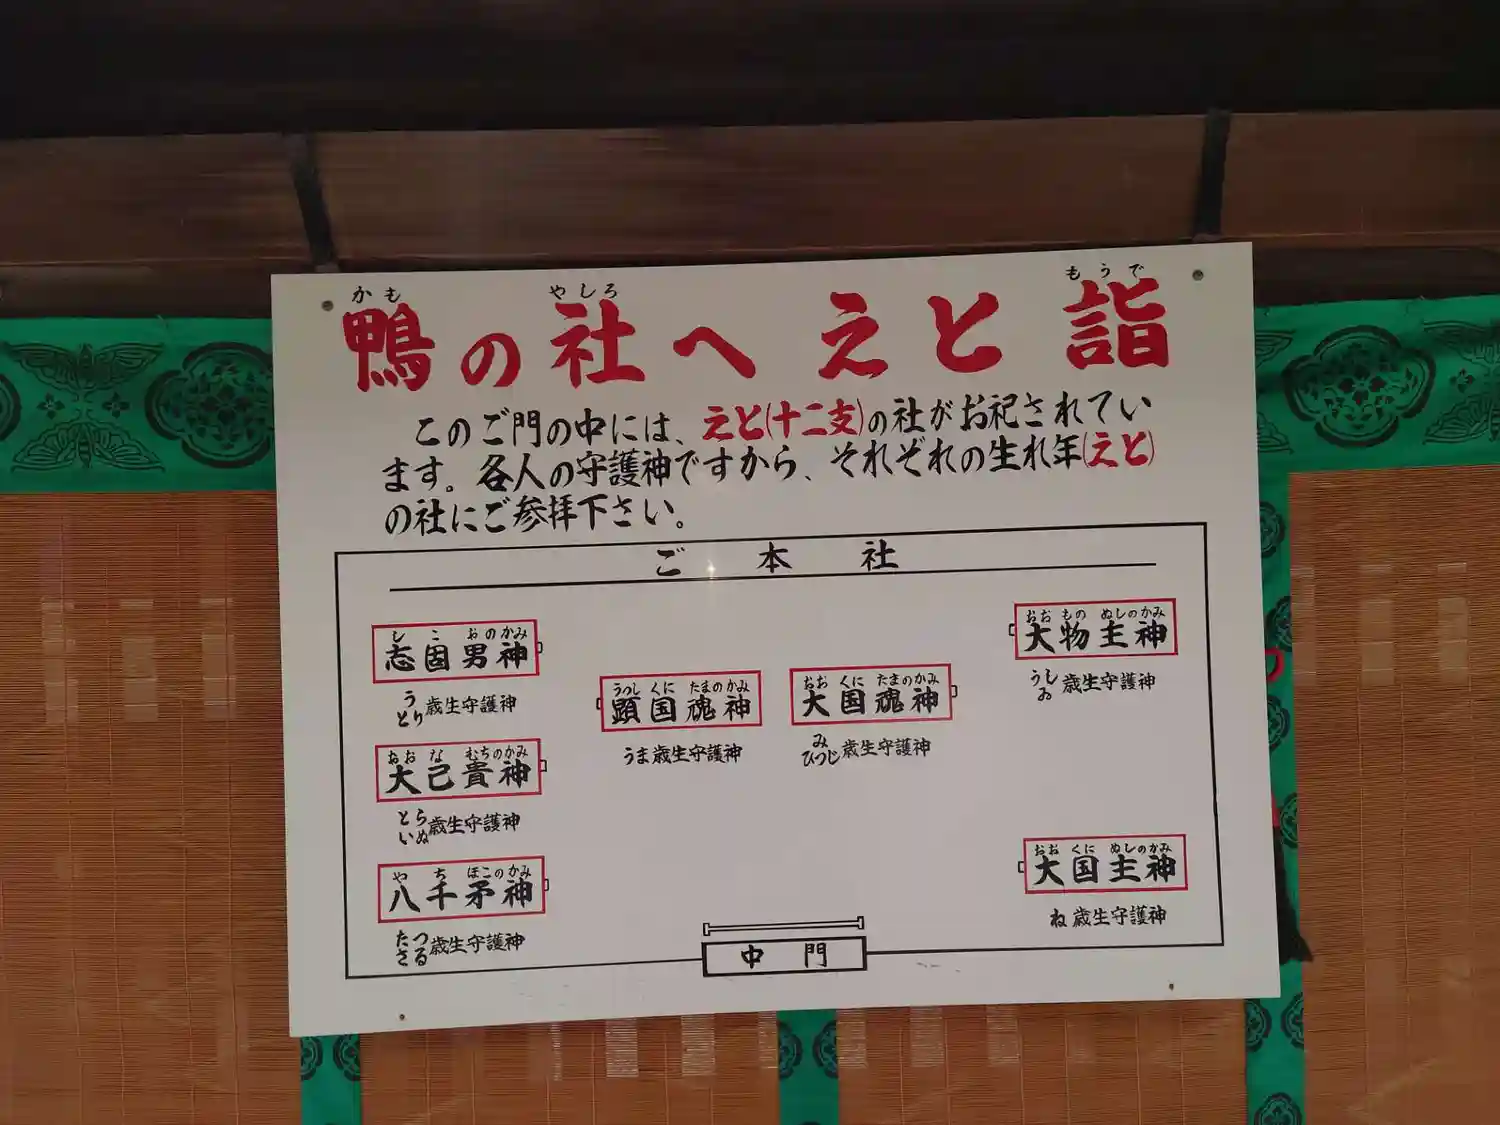 かも やしろ もうで
鴨の社へ えと 詣
このご門の中には、えと(十二支)の社がお祀されてい
ます。各人の守護神ですから、それぞれの生れ年(えと)
の社にご参拝下さい。
ご 本 社
しこ おのかみ
志固男神
う とり 歳生守護神
おおな むちのかみ
大己貴神
とら いぬ 歳生守護神
やち ほこのかみ
八千矛神
たつ さる 歳生守護神
うつし くに たまのかみ
顕国魂神
うま歳生守護神
おお くに たまのかみ
大国魂神
み ひつじ 歳生守護神
おお もの ぬしのかみ
大物主神
うし ゐ 歳生守護神
おお くに ぬしのかみ
大国主神
ね 歳生守護神
中 門